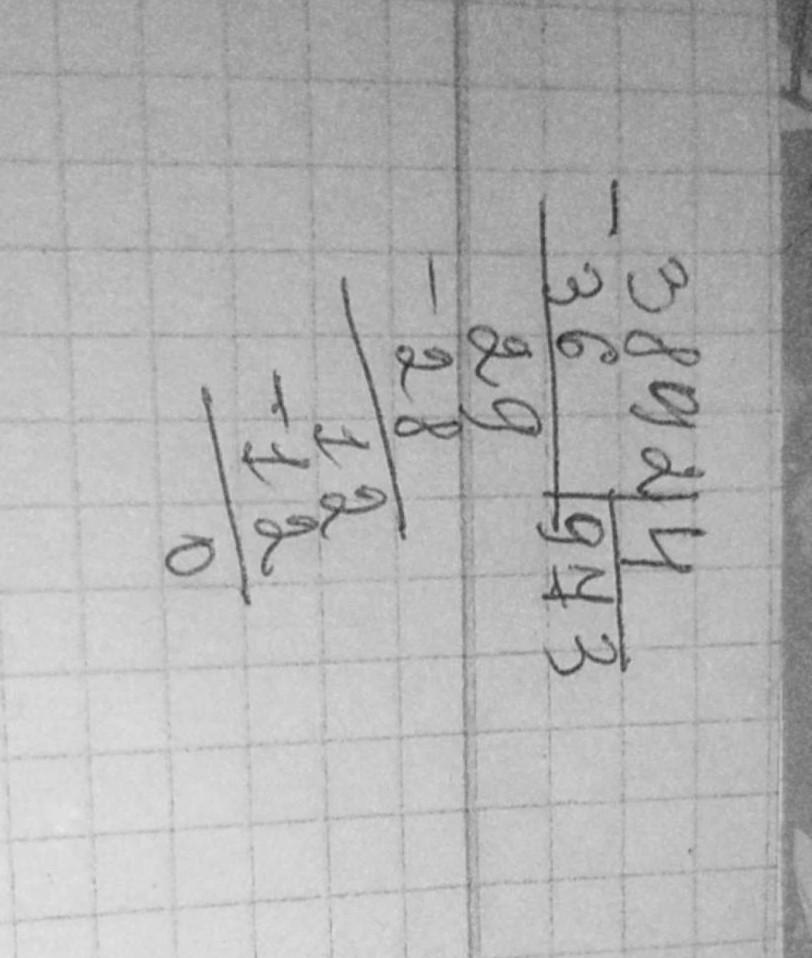 - 3892 | 4
36 | 973
29
- 28
12
- 12
0